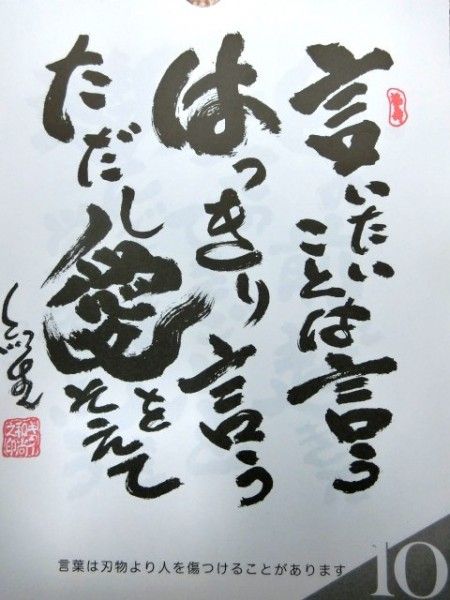 言いたいことは言う
はっきり言う
ただし愛をそえて
言葉は刃物より人を傷つけることがあります
10